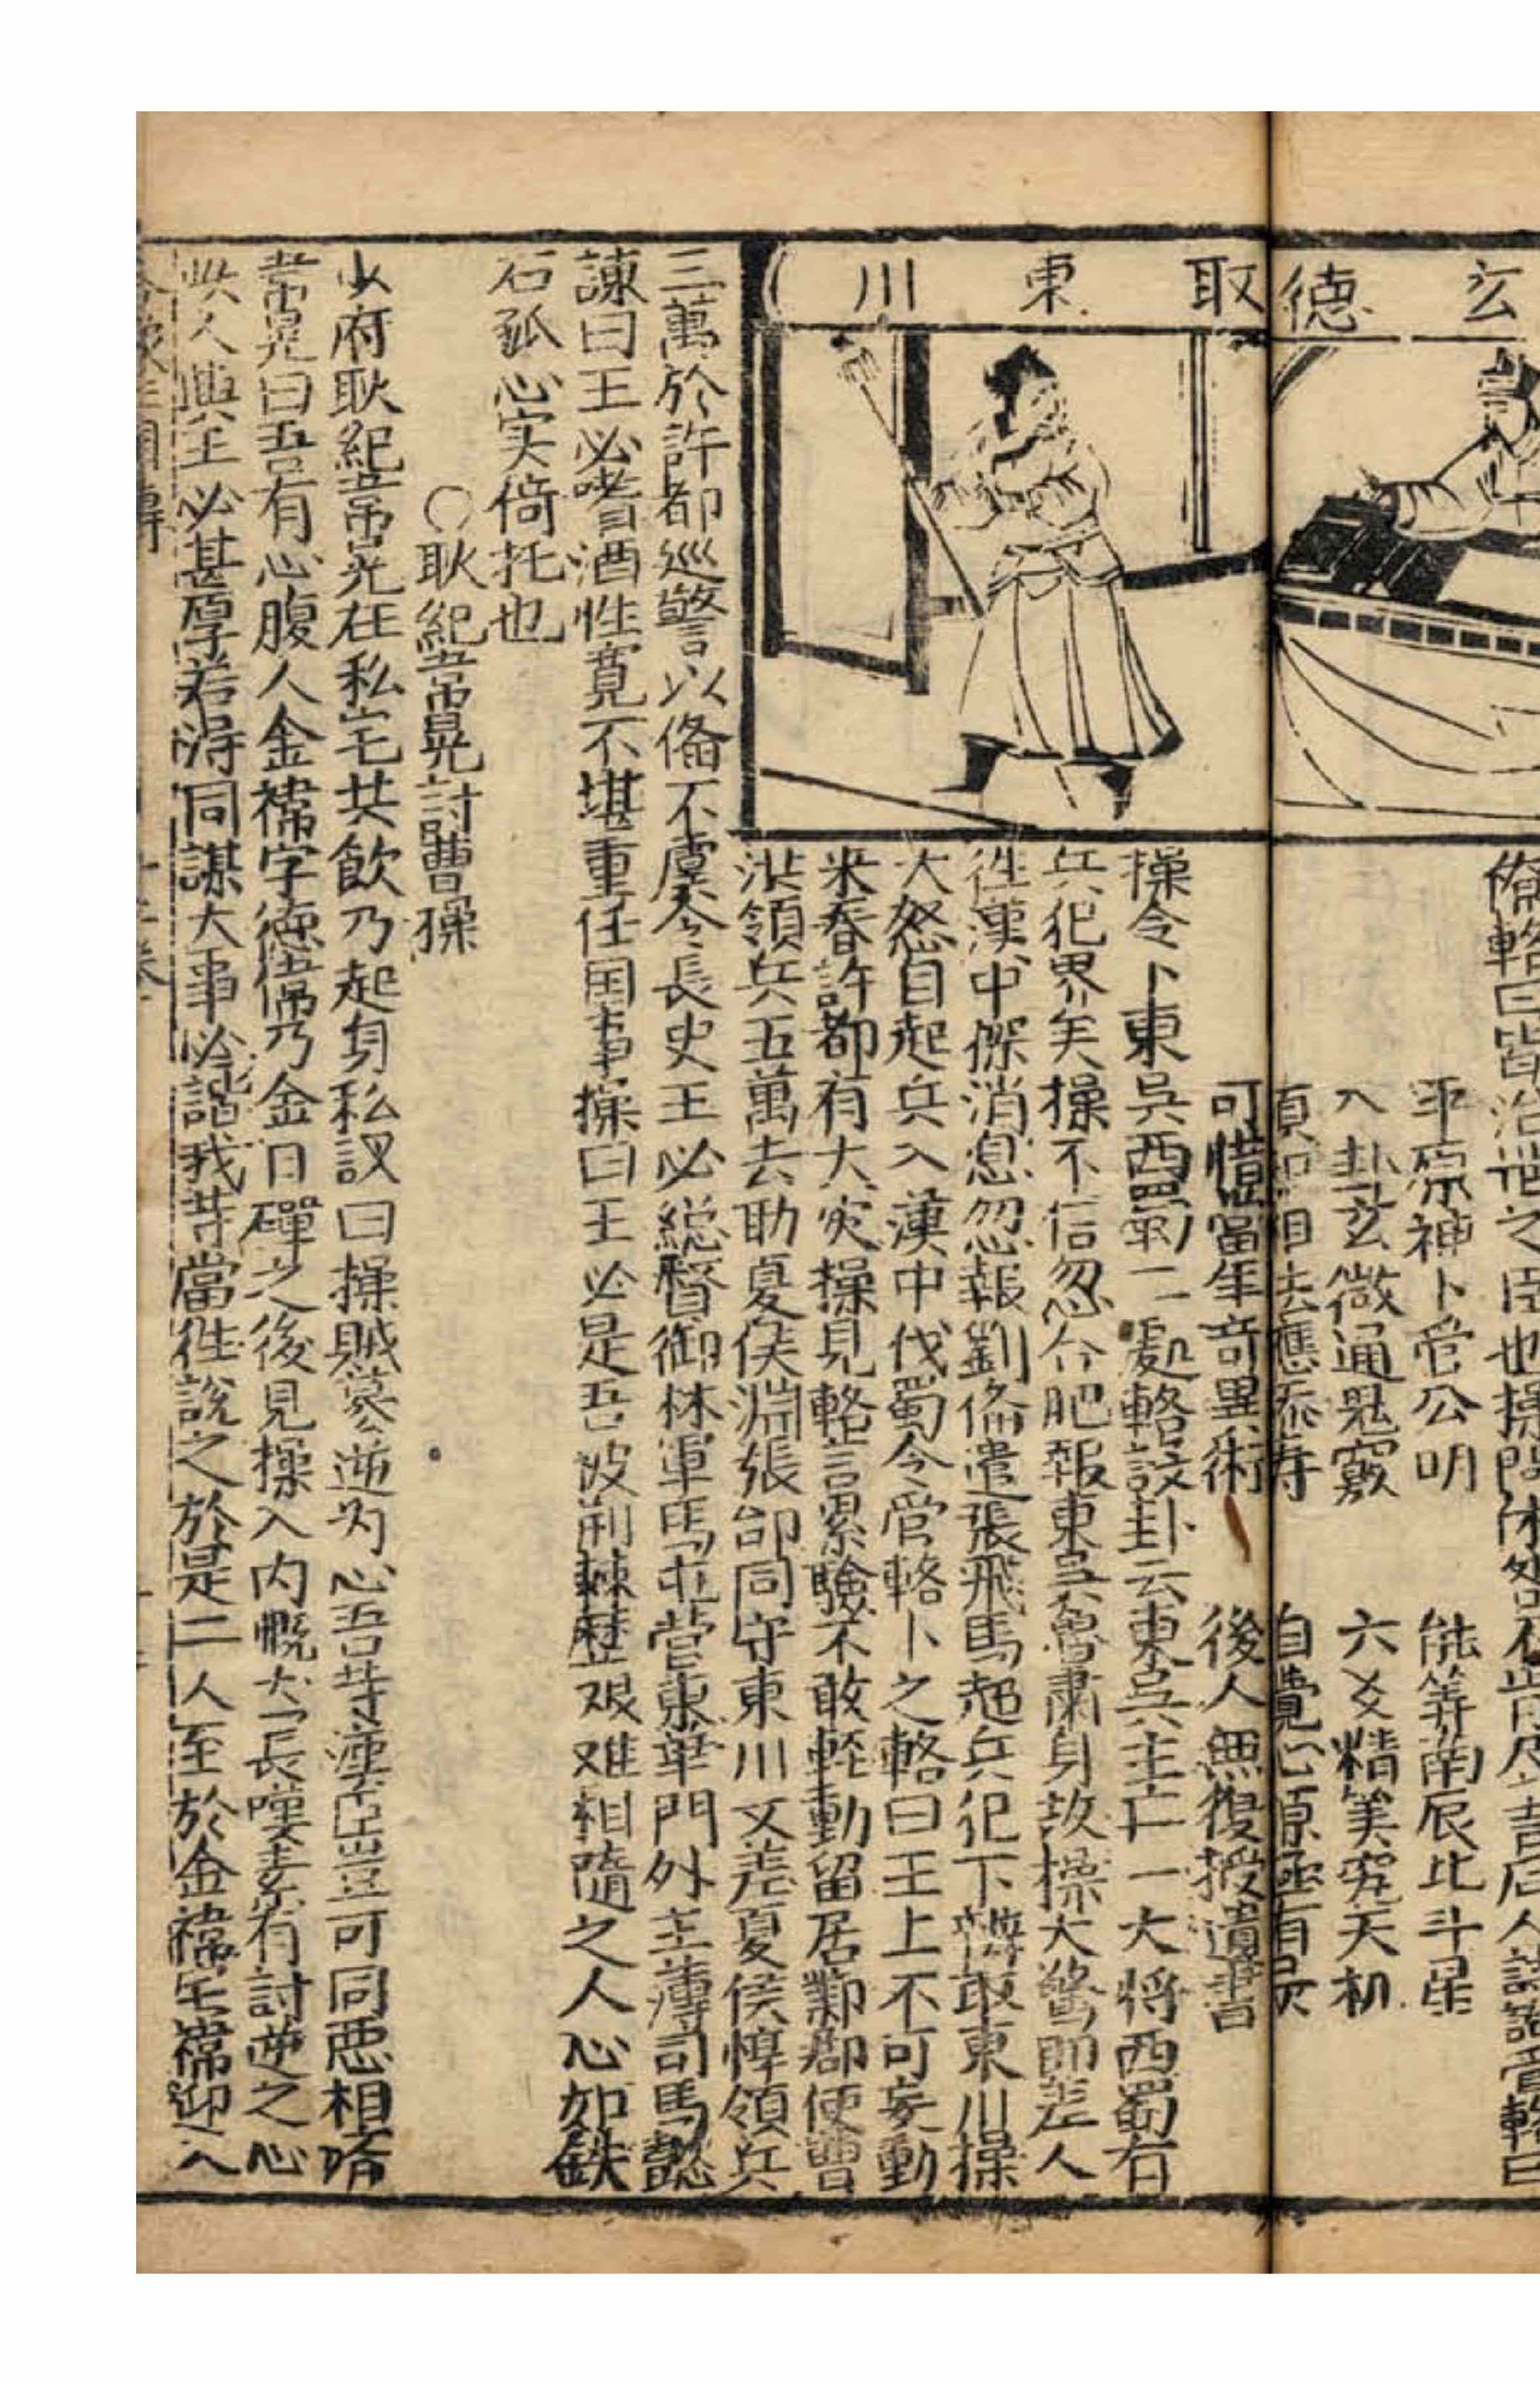 玄德取東川
備輅曰皆治世之臣也操問休咎不肯尽言后人詩讃管輅曰
平原神卜管公明 能筭南辰北斗星
八卦玄微通鬼竅 六爻精筭究天机
預知相法應 自覺心源極有灵
可惜當年奇異術 後人無復授遺書
操令卜東吳西蜀二處輅設卦云東吳主亡一大将西蜀有
兵犯界矣操不信忽合肥報東吳魯肅身故操大驚即差人
徃漢中探消息忽報劉俻遣張飛馬超兵犯下辨取東川操
大怒自起兵入漢中伐蜀令管輅卜之輅曰王上不可妄動
来春許都有大灾操見輅言累驗不敢輕動留居鄴郡使曹
洪領兵五萬去助夏侯淵張郃同守東川又差夏侯惇領兵
三萬於許都巡警以俻不虞令長史王必総督御林軍馬屯營東華門外主薄司馬懿
諫曰王必嗜酒性寛不堪重任国事操曰王必是吾披荊棘歷艰难相隨之人心如鉄
石孤心实倚托也
○耿紀韋晃討曹操
少府耿紀韋晃在私宅共飲乃起身私議曰操賊篡逆为心吾等漢臣豈可同恶相濟
韋晃曰吾有心腹人金禕字德偉乃金日磾之後見操入内慨犬長嘆素有討逆之心
此人與王必甚厚若淂同謀大事必諧我等當徃說之於是二人至於金禕宅禕迎入